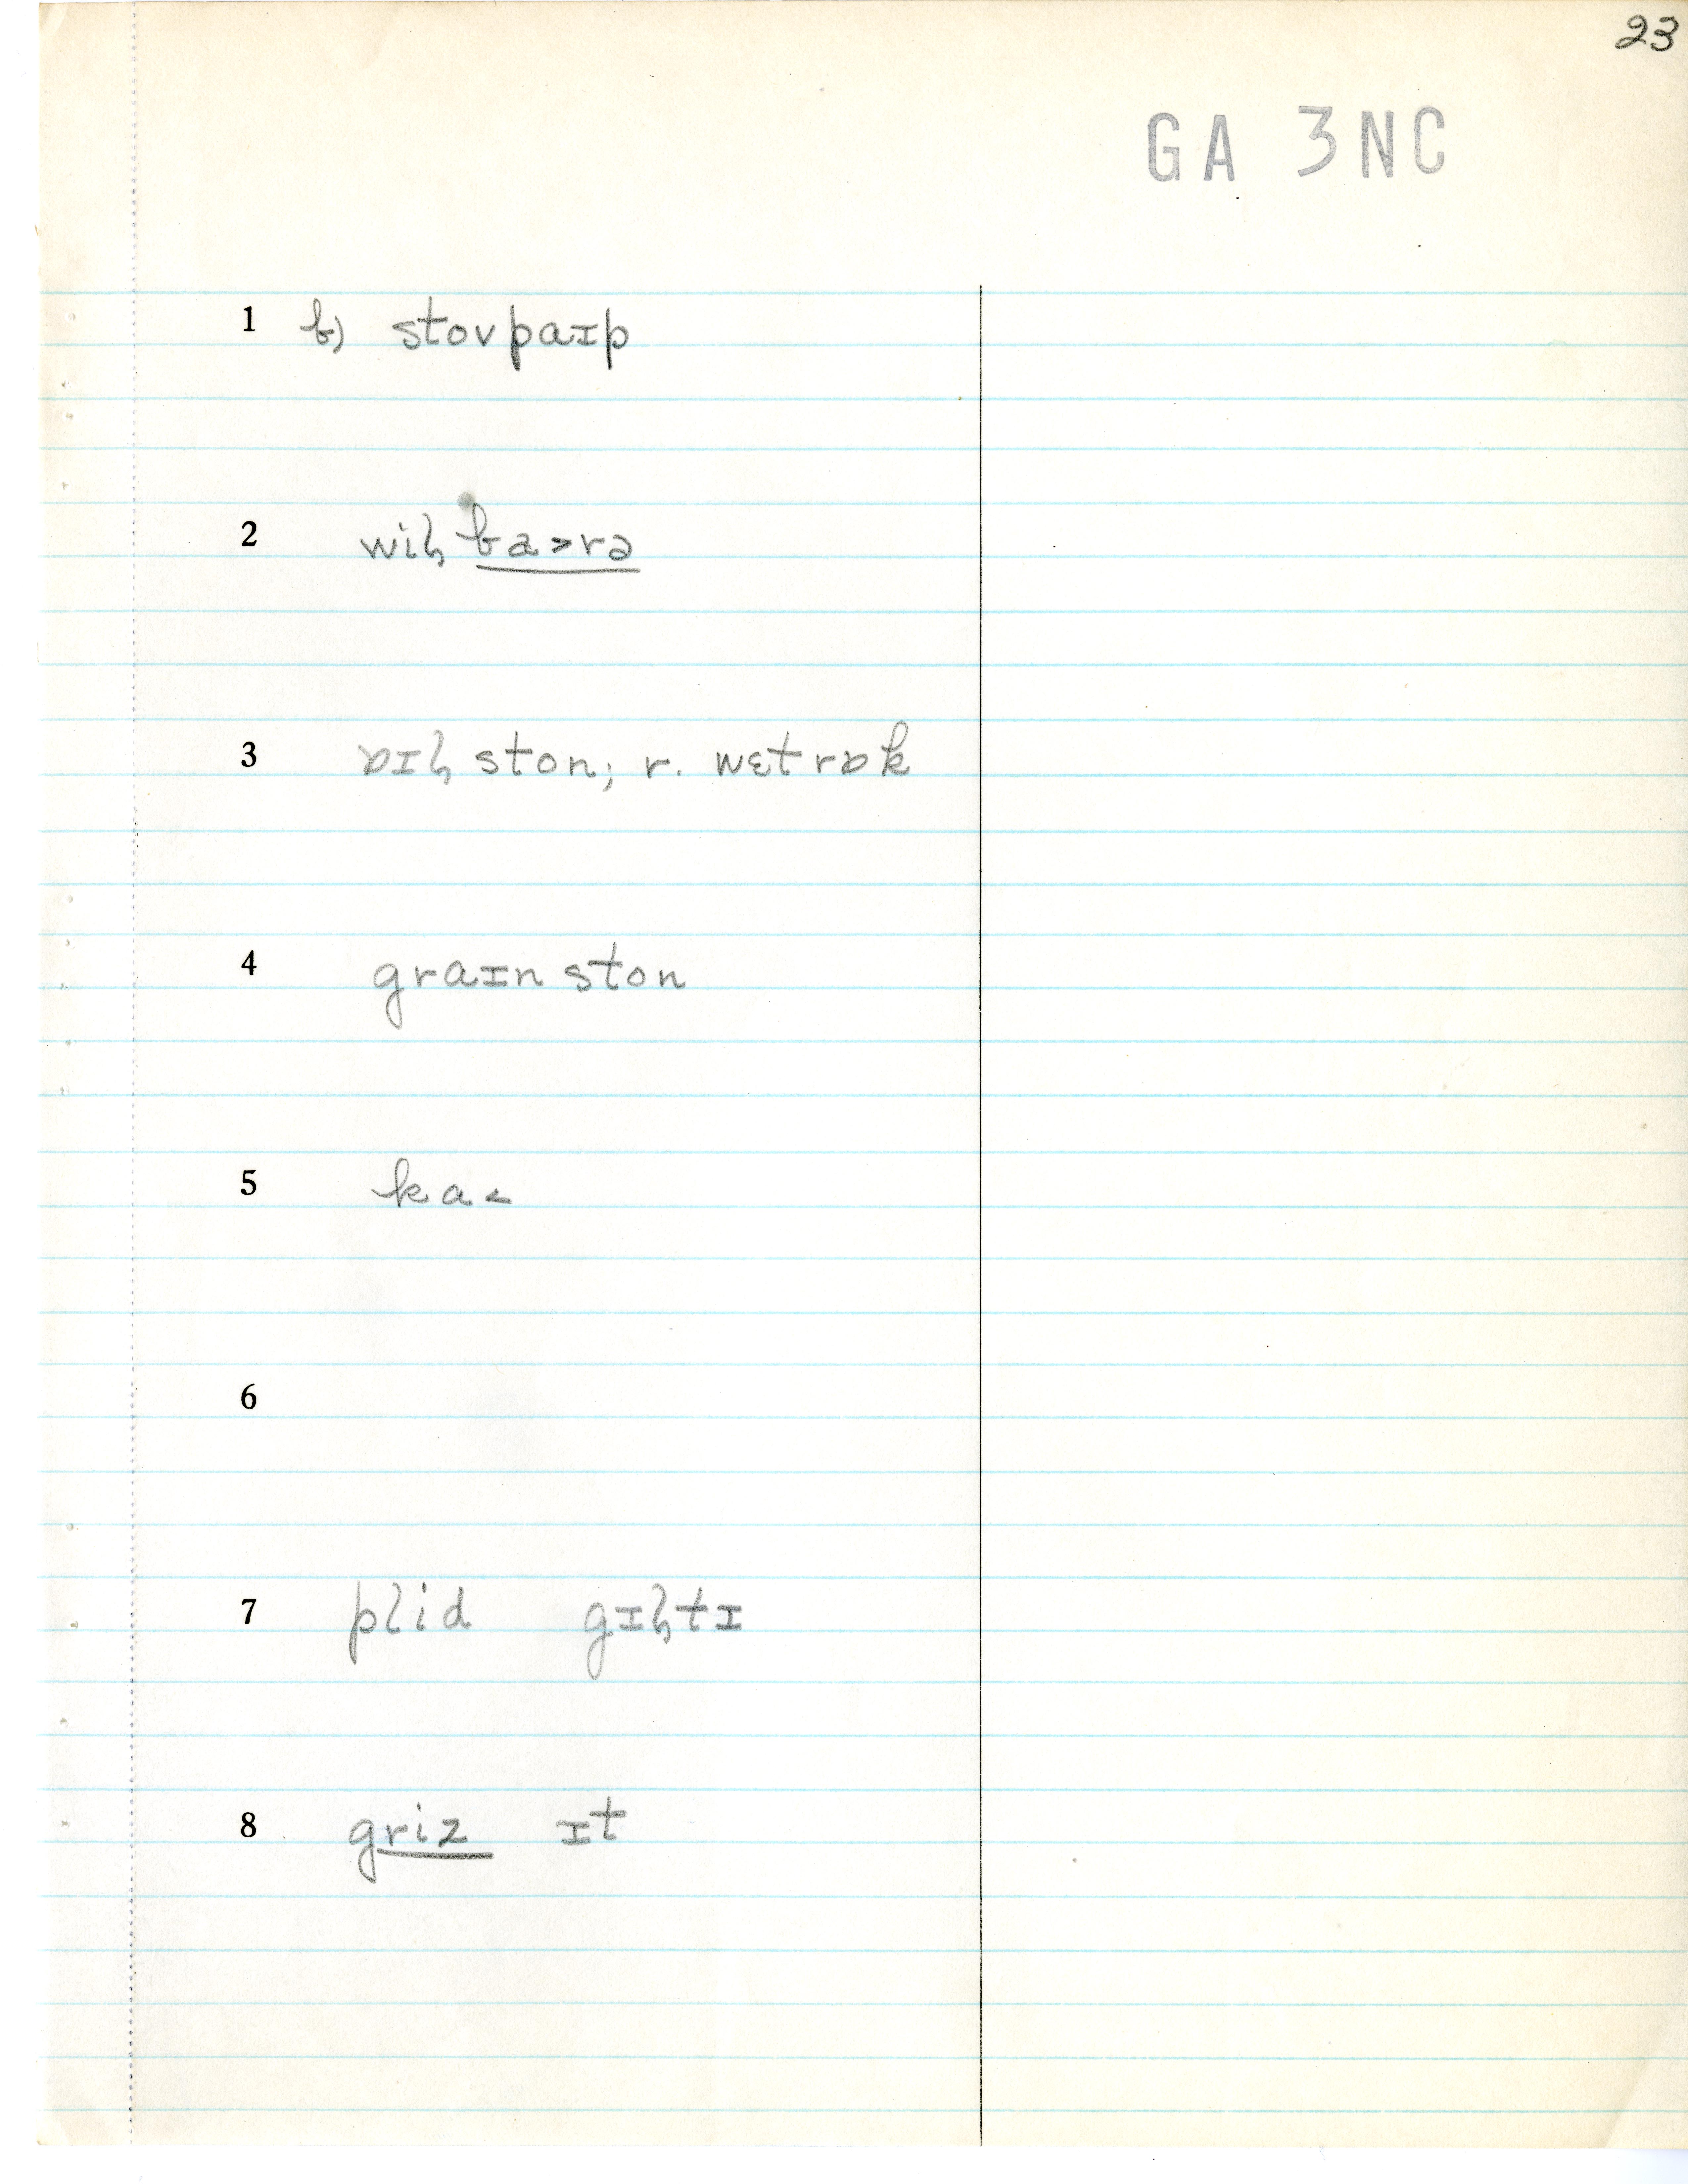 23
GA 3NC
1 b) stovpaɪp
2 wiɫ ba˃rə
3 ɒɪɫ ston; r. wɛtrɒk
4 graɪn ston
5 ka˂
6
7 plid gɪɫtɪ
8 griz ɪt